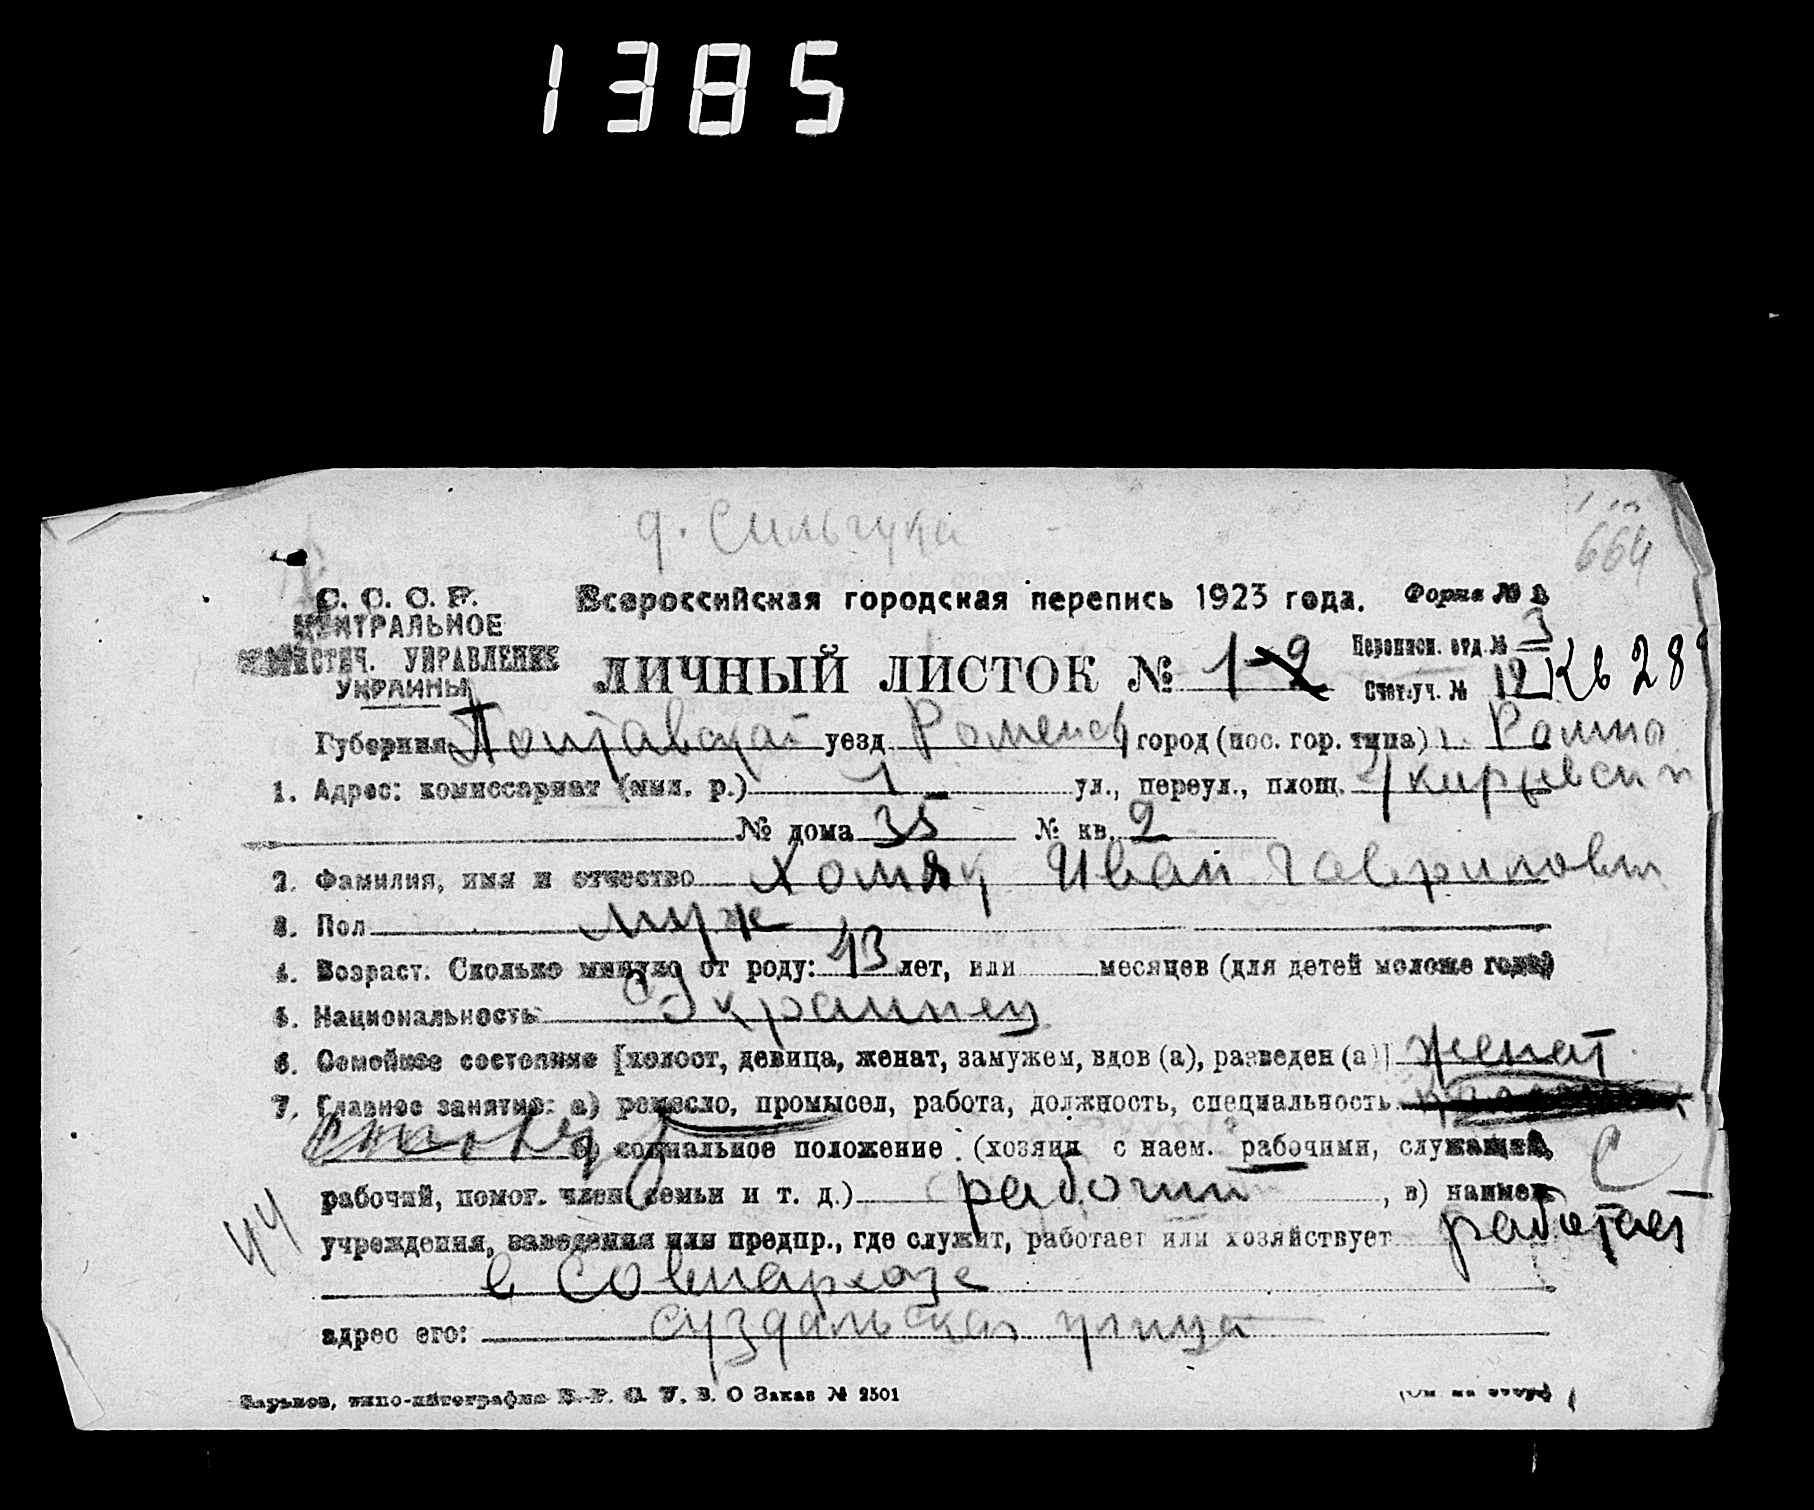 1385
д. Сильчука
664
С. С. С. Р.
ЦЕНТРАЛЬНОЕ
СТАТИСТИЧ. УПРАВЛЕНИЕ
УКРАИНЫ
Всероссийская городская перепись 1923 года.
Форма № 1
ЛИЧНЫЙ ЛИСТОК № 1
Переписн. отд. № 3
Счет. уч. № 19 Кв 28
Губерния Полтавская уезд Роменск город (пос. гор. типа) г. Ромно
1. Адрес: комиссариат (мил. р.) 1 ул., переул., площ.
№ дома 35 № кв. 2
2. Фамилия, имя и отчество Хомяк Иван Гаврилович
3. Пол муж
4. Возраст. Сколько минуло от роду: 43 лет, или месяцев (для детей моложе года)
5. Национальность Украинец
6. Семейное состояние [холост, девица, женат, замужем, вдов (а), разведен (а)] женат
7. Главное занятие: а) ремесло, промысел, работа, должность, специальность
б) социальное положение (хозяин с наем. рабочими, служащий,
С
рабочий, помог. член семьи и т. д.) рабочий, в) наимен.
44
учреждения, заведения или предпр., где служит, работает или хозяйствует работает
в Совнархозе
адрес его: Суздальская улица
Харьков, типо-литография В. У. З. О Заказ № 2501